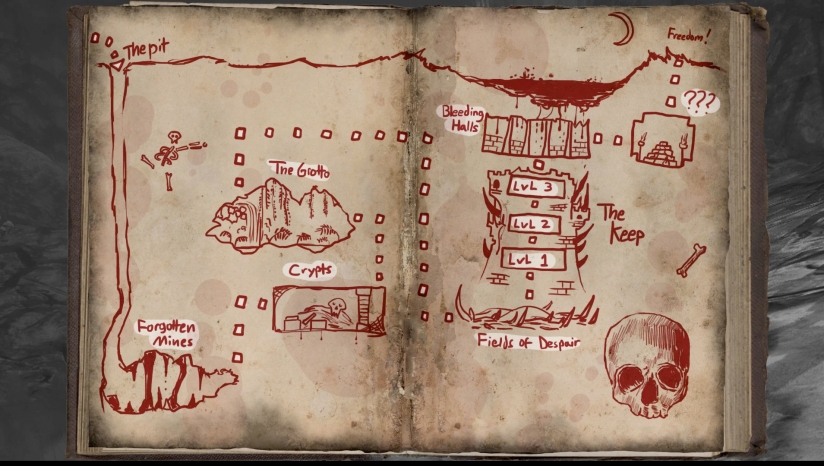 The pit
Freedom!
???
Bleeding
Halls
The Grotto
LvL 3
LvL 2
LvL 1
The
Keep
Crypts
Forgotten
Mines
Fields of Despair